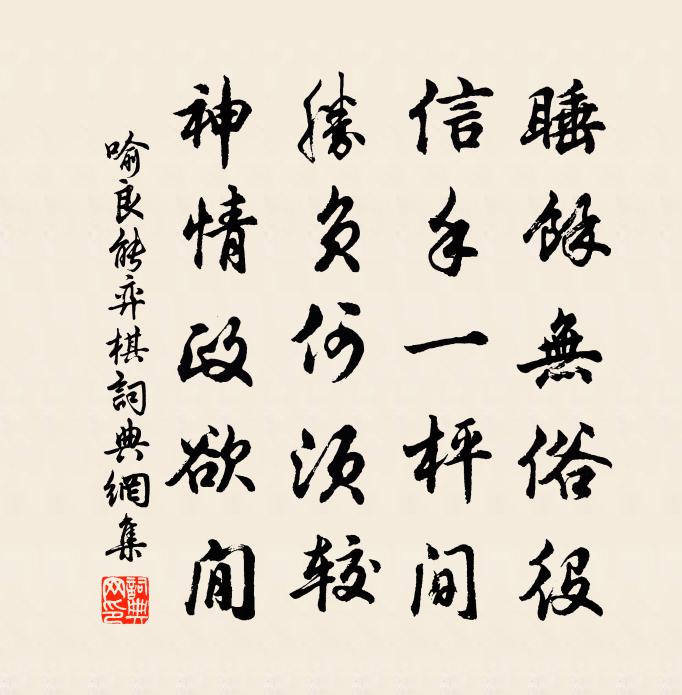 睡餘無俗役
信手一枰間
勝負何須較
神情政欲閒
喻良能弈棋詞典網集
詞典網印